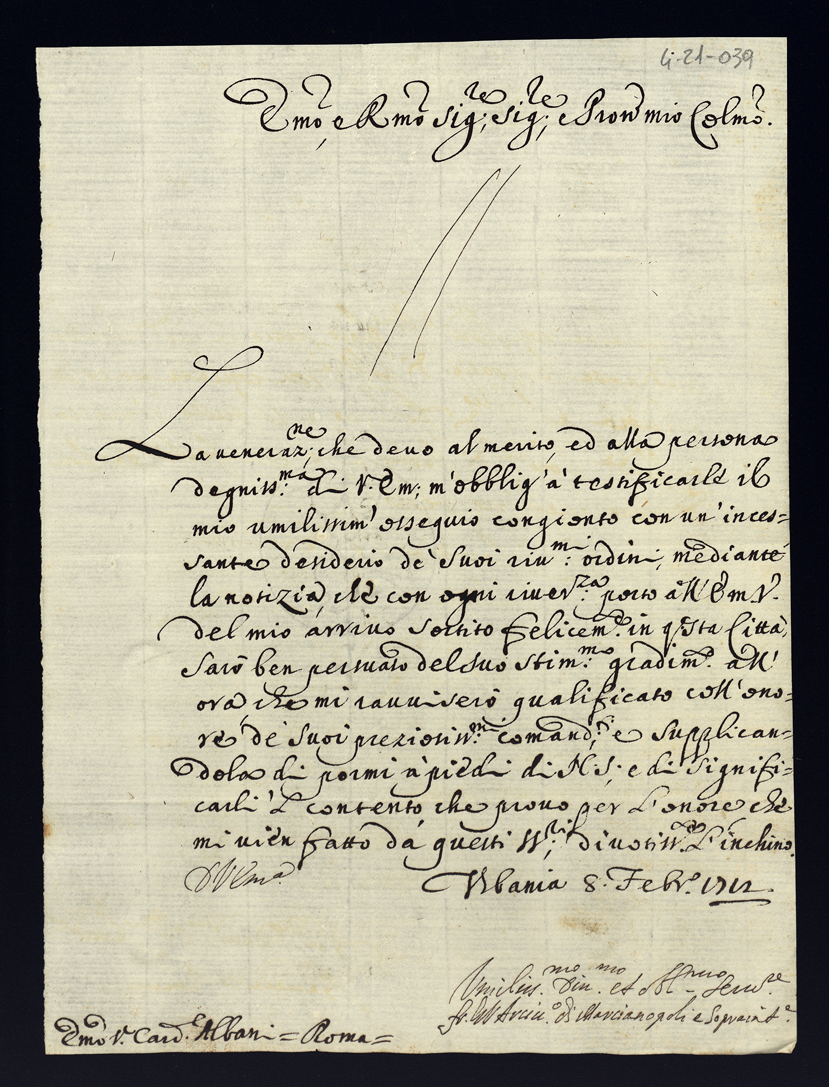 4-21-039
Emo, e Rmo Sig:re Sig:re e Pron mio Colmo.
La veneraz:ne che devo al merito, ed alla persona
degniss:ma di V. Em; m'obblig'à testificarle il
mio umilissim'ossequio congionto con un'inces=
sante desiderio de' suoi riv:mi ordini, mediante
la notizia, che con ogni river:za porto all'Em.V.
del mio arrivo sortito felicem:e in q'sta Città,
Sarò ben persuaso del suo stim:mo gradim:o all'
ora che mi ravviserò qualificato coll'ono=
re de' suoi preziosiss:mi comand:i e supplican=
dola di pormi a' piedi di N.S; e di signifi=
carli'l contento che provo per l'onore che
mi vien fatto da questi SS:ri, divotiss:e l'inchino.
D V Em:a
Urbania 8. Febr:o 1712.
Umiliss:mo Div:mo et Obl:mo Serv:re
fr. Arciv:o di Marcianopoli e
Emo S.r Card:e Albani = Roma =